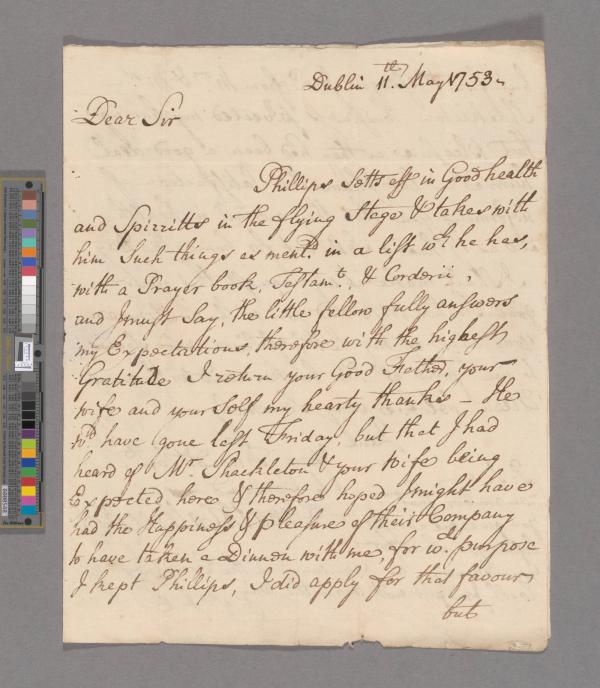 Dublin 11th. May 1753
Dear Sir
Phillips Setts off in Good health
and Spirritts in the flying Stage & takes with
him Such things as mentd. in a list wch. he has,
with a Prayer book, Testamt. & Corderii,
and I must Say, the little fellow fully answers
my Expectations, therefore with the highest
Gratitude I return your Good Father, your
wife and your Self my hearty thanks — He
wd. have gone last Friday, but that I had
heard of Mr. Shackleton & your wife being
Expected here & therefore hoped I might have
had the Happiness & pleasure of their Company
to have taken a Dinner with me, for wch. purpose
I kept Phillips, I did apply for that favour
but